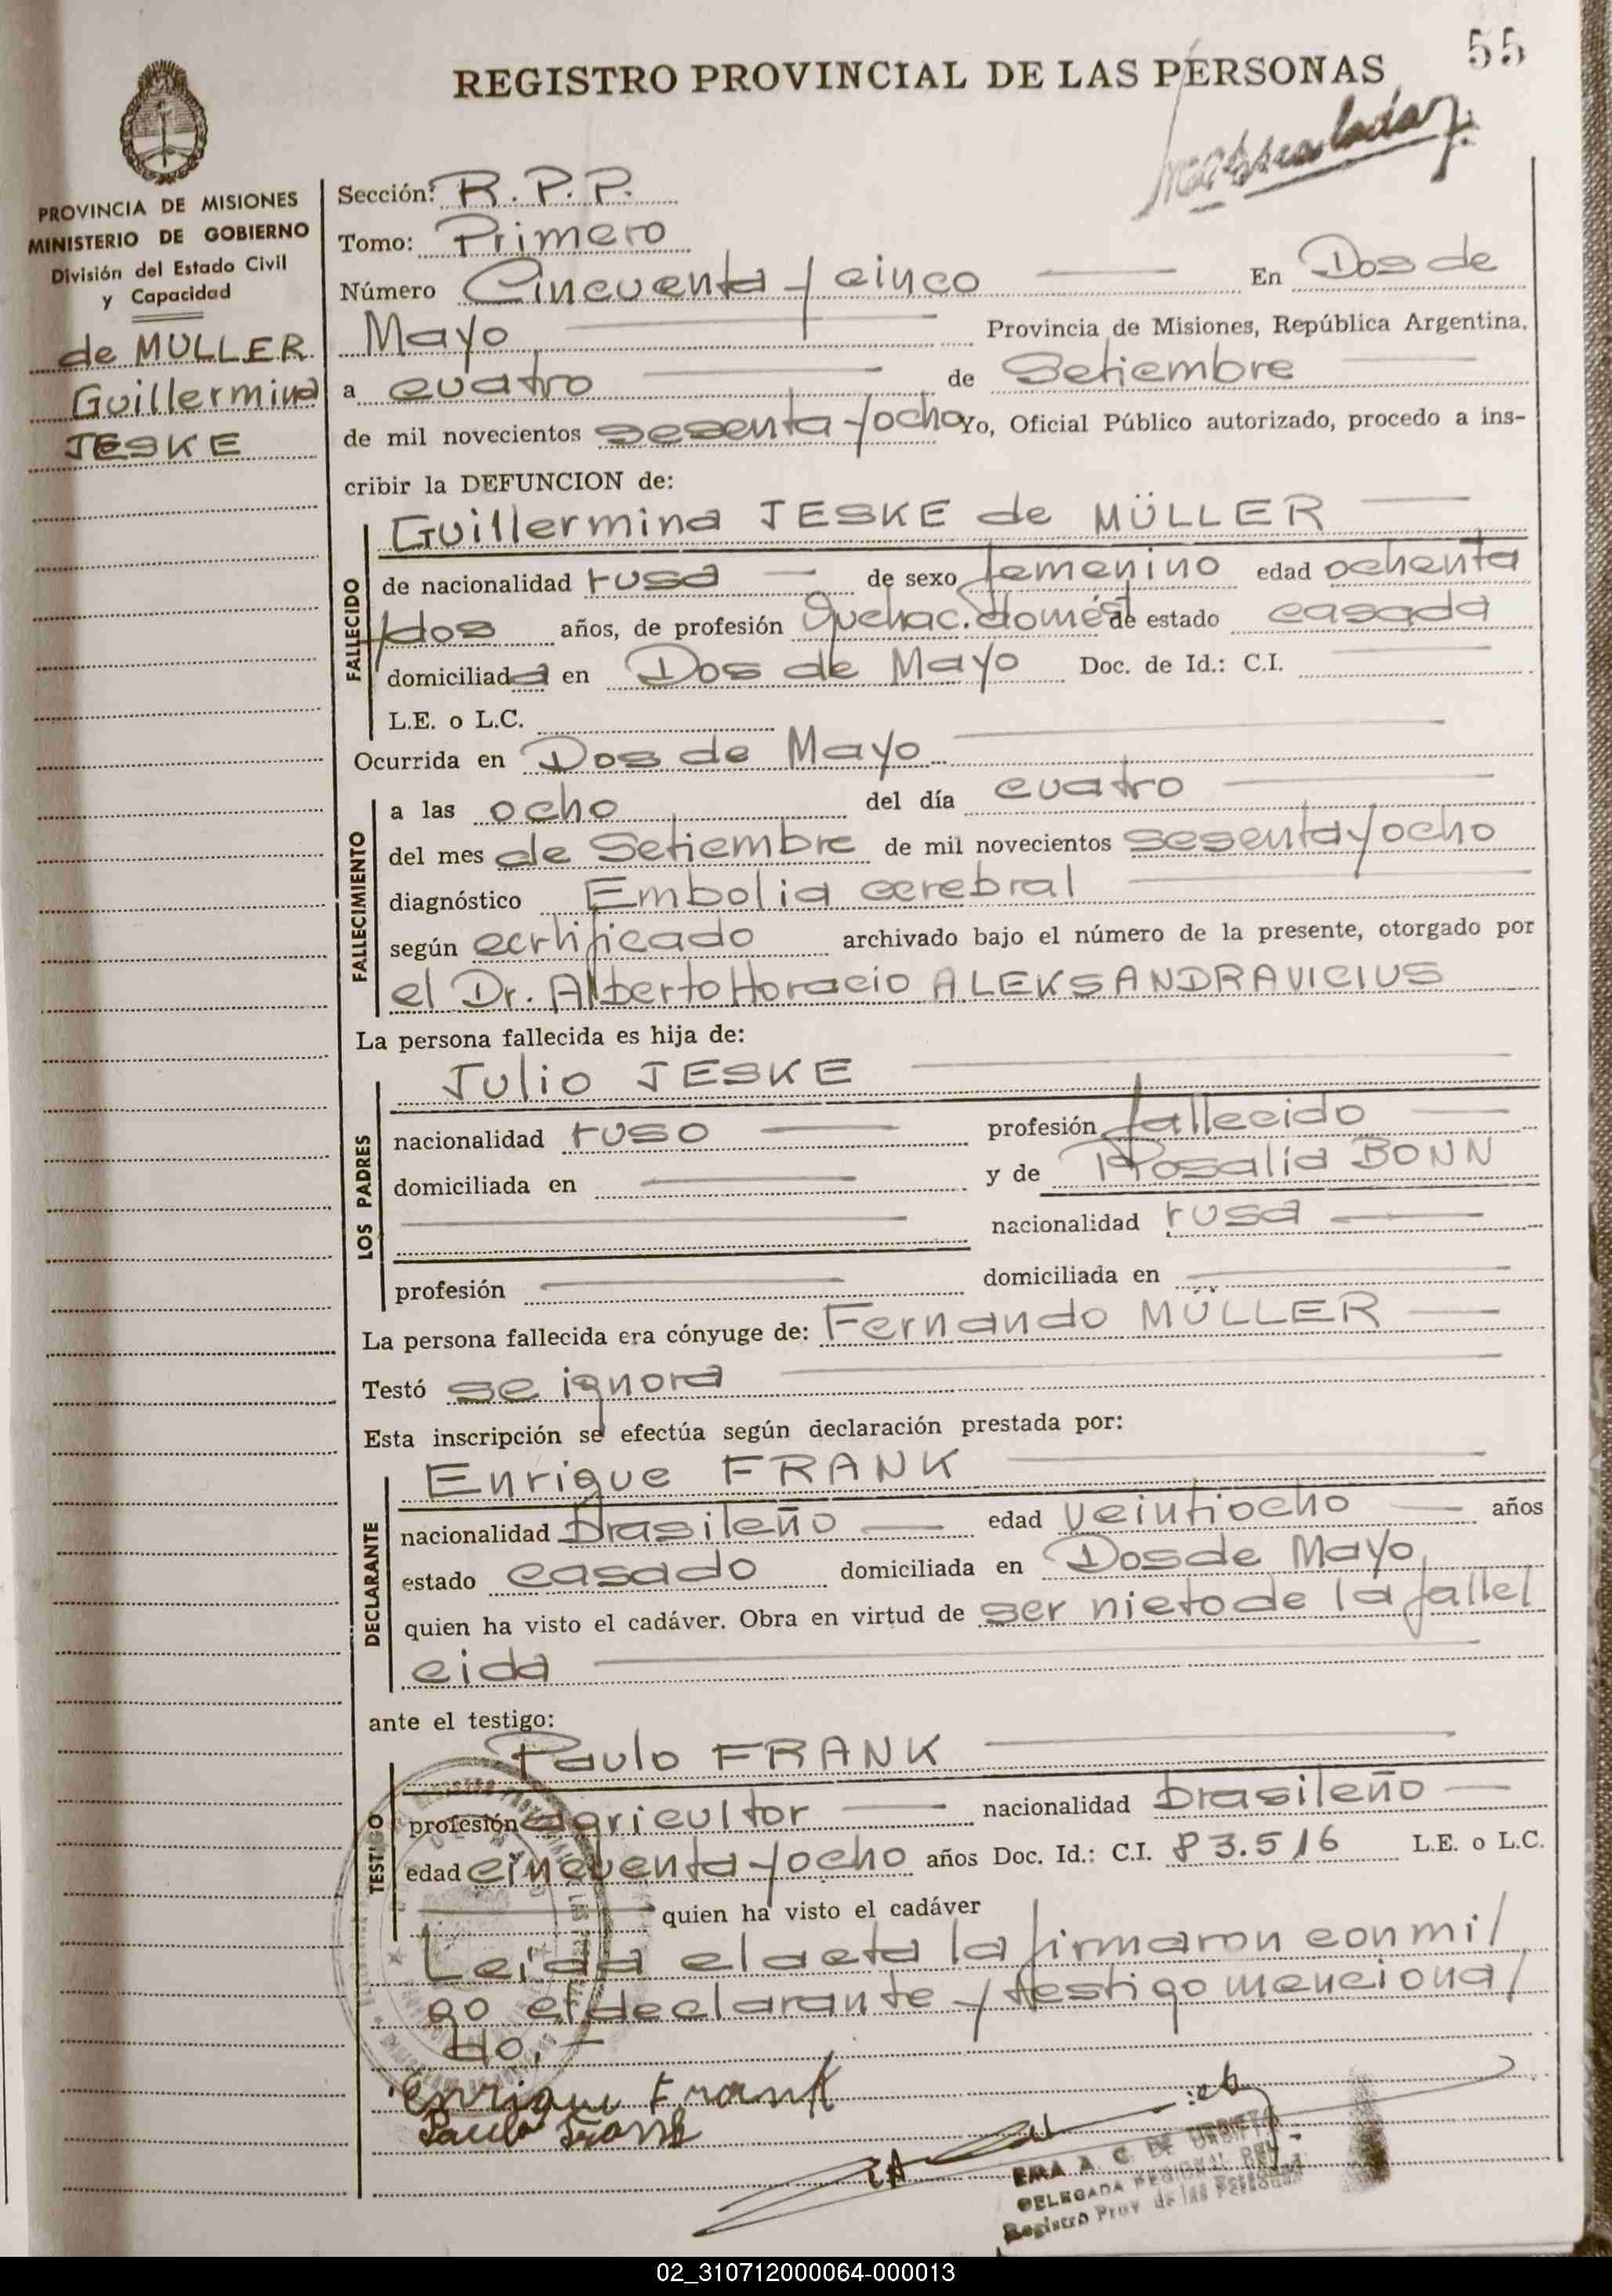 55
REGISTRO PROVINCIAL DE LAS PERSONAS
PROVINCIA DE MISIONES
MINISTERIO DE GOBIERNO
División del Estado Civil
y Capacidad
de MULLER
Guillermina
JESKE
Sección: R.P.P.
Tomo: Primero
Número Cincuenta y cinco En Dos de
Mayo Provincia de Misiones, República Argentina,
a cuatro de Setiembre
de mil novecientos sesenta y ocho Yo, Oficial Público autorizado, procedo a ins-
cribir la DEFUNCION de:
FALLECIDO
Guillermina JESKE de MÜLLER
de nacionalidad rusa de sexo femenino edad ochenta
y dos años, de profesión Quehac. domést de estado casada
domiciliada en Dos de Mayo Doc. de Id.: C.I.
L.E. o L.C.
Ocurrida en Dos de Mayo
FALLECIMIENTO
a las ocho del día cuatro
del mes de Setiembre de mil novecientos sesenta y ocho
diagnóstico Embolia cerebral
según certificado archivado bajo el número de la presente, otorgado por
el Dr. Alberto Horacio ALEKSANDRAVICIUS
La persona fallecida es hija de:
LOS PADRES
Julio JESKE
nacionalidad ruso profesión fallecido
domiciliada en y de Rosalia BONN
nacionalidad rusa
profesión domiciliada en
La persona fallecida era cónyuge de: Fernando MÜLLER
Testó se ignora
Esta inscripción se efectúa según declaración prestada por:
DECLARANTE
Enrique FRANK
nacionalidad brasileño edad veintiocho años
estado casado domiciliada en Dos de Mayo
quien ha visto el cadáver. Obra en virtud de ser nieto de la falle/
cida
ante el testigo:
TESTIGO
Paulo FRANK
profesión agricultor nacionalidad brasileño
edad cincuenta y ocho años Doc. Id.: C.I. 83.516 L.E. o L.C.
quien ha visto el cadáver
Leida el acta la firmaron conmi/
go el declarante y testigo menciona/
do.-
Enrique Frank
Paulo Frank
EMA A. C. DE URRIETA
DELEGADA REGIONAL
Registro Prov. de las Personas
02_310712000064-000013